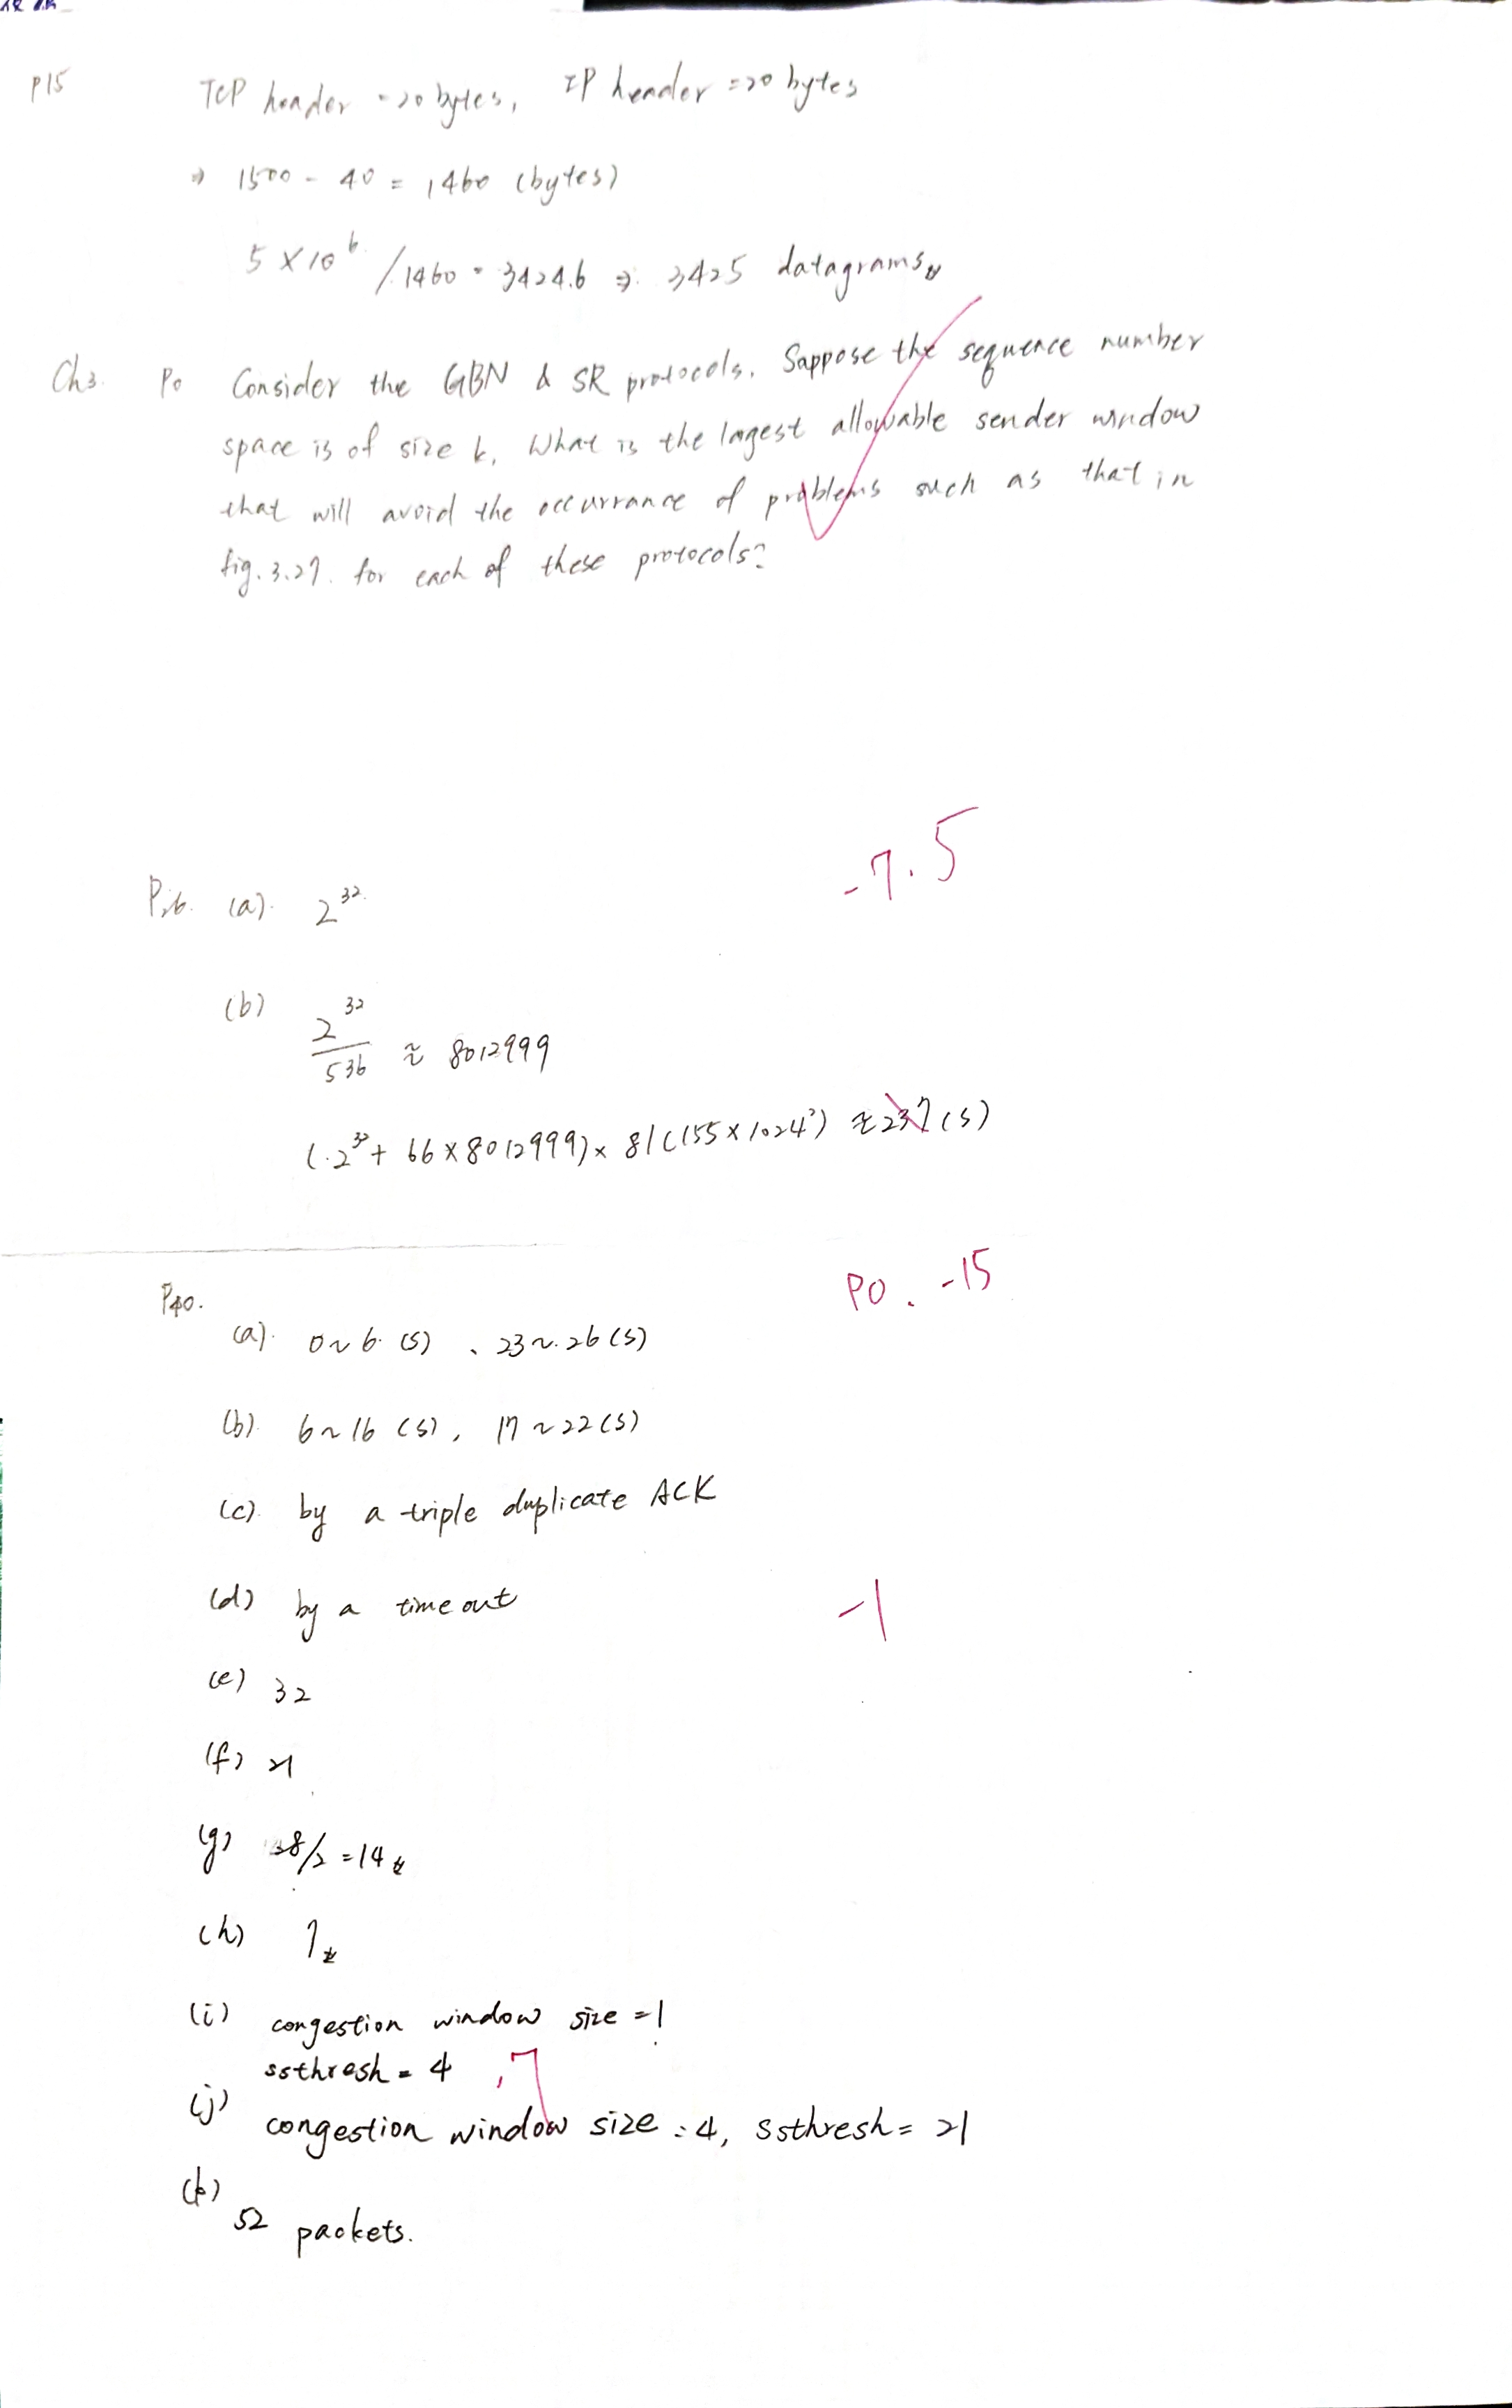 P15 TCP header = 20 bytes, IP header = 20 bytes
⇒ 1500 - 40 = 1460 (bytes)
5 × 10^6 / 1460 = 3424.6 ⇒ 3425 datagrams
Ch3. P0 Consider the GBN & SR protocols. Suppose the sequence number
space is of size k, What is the largest allowable sender window
that will avoid the occurrance of problems such as that in
fig. 3.27. for each of these protocols?
-7.5
P26. (a). 2^32
(b) 2^32 / 536 ≈ 8012999
(2^32 + 66 × 8012999) × 8 / (155 × 1024^2) ≈ 237 (s)
P0. -15
P40.
(a). 0 ~ 6 (s) 、 23 ~ 26 (s)
(b). 6 ~ 16 (s), 17 ~ 22 (s)
(c). by a triple duplicate ACK
(d) by a time out
-1
(e) 32
(f) 21
(g) 28/2 = 14
(h) 7
(i) congestion window size = 1
ssthresh = 4 , 7
(j) congestion window size = 4, ssthresh = 21
(k) 52 packets.